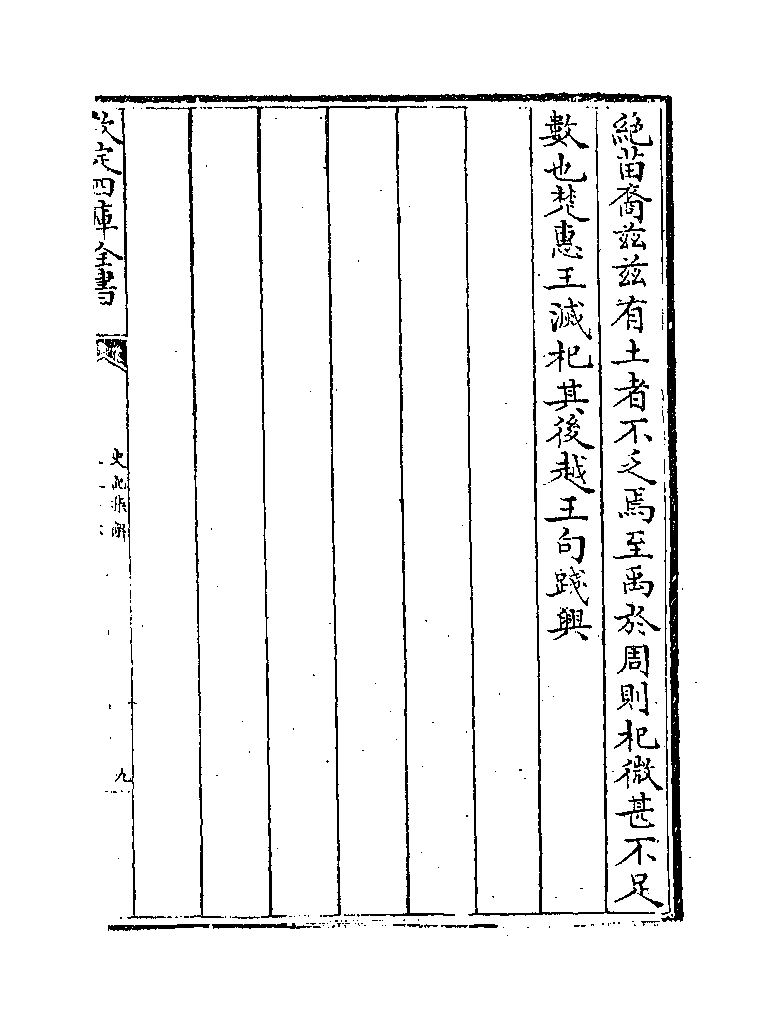 絶苗裔兹兹有土者不乏焉至禹於周則杞微甚不足
數也楚惠王滅杞其後越王句踐興
欽定四庫全書
史記集解
九